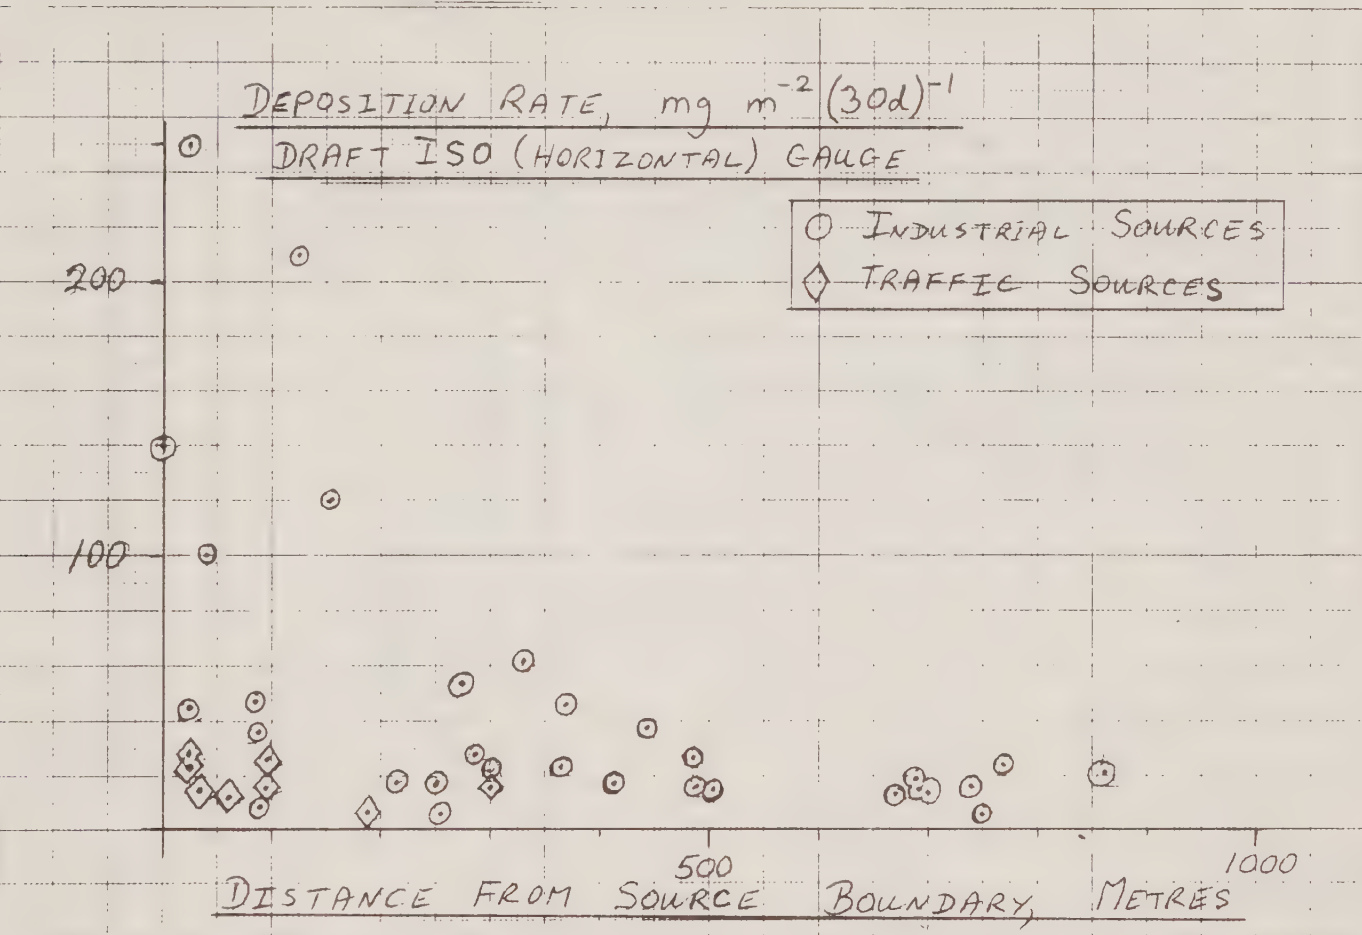 DEPOSITION RATE, mg m⁻² (30d)⁻¹
DRAFT ISO (HORIZONTAL) GAUGE
INDUSTRIAL SOURCES
200
TRAFFIC SOURCES
100
500
1000
DISTANCE FROM SOURCE BOUNDARY, METRES